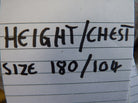 HEIGHT/CHEST
SIZE 180/104